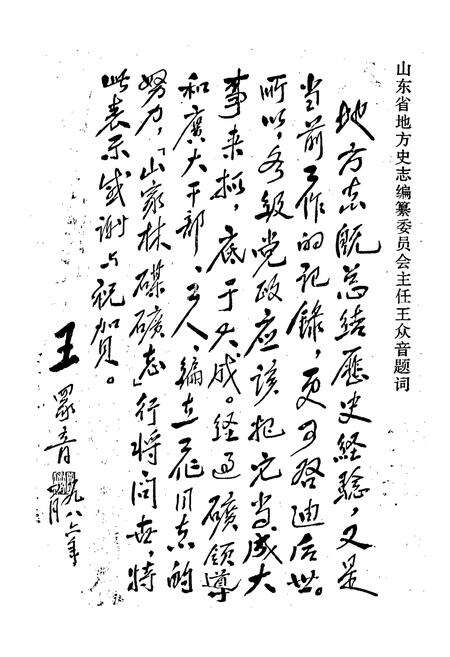 山东省地方史志编纂委员会主任王众音题词
地方志既总结历史经验，又是
当前工作的记录，更可启迪后世。
所以，各级党政应该把它当成大
事来抓，底于大成。经过矿领导
和广大干部、工人、编志工作同志的
努力，「山家林煤矿志」行将问世，特
此表示感谢与祝贺。
王众音
一九八六年
月